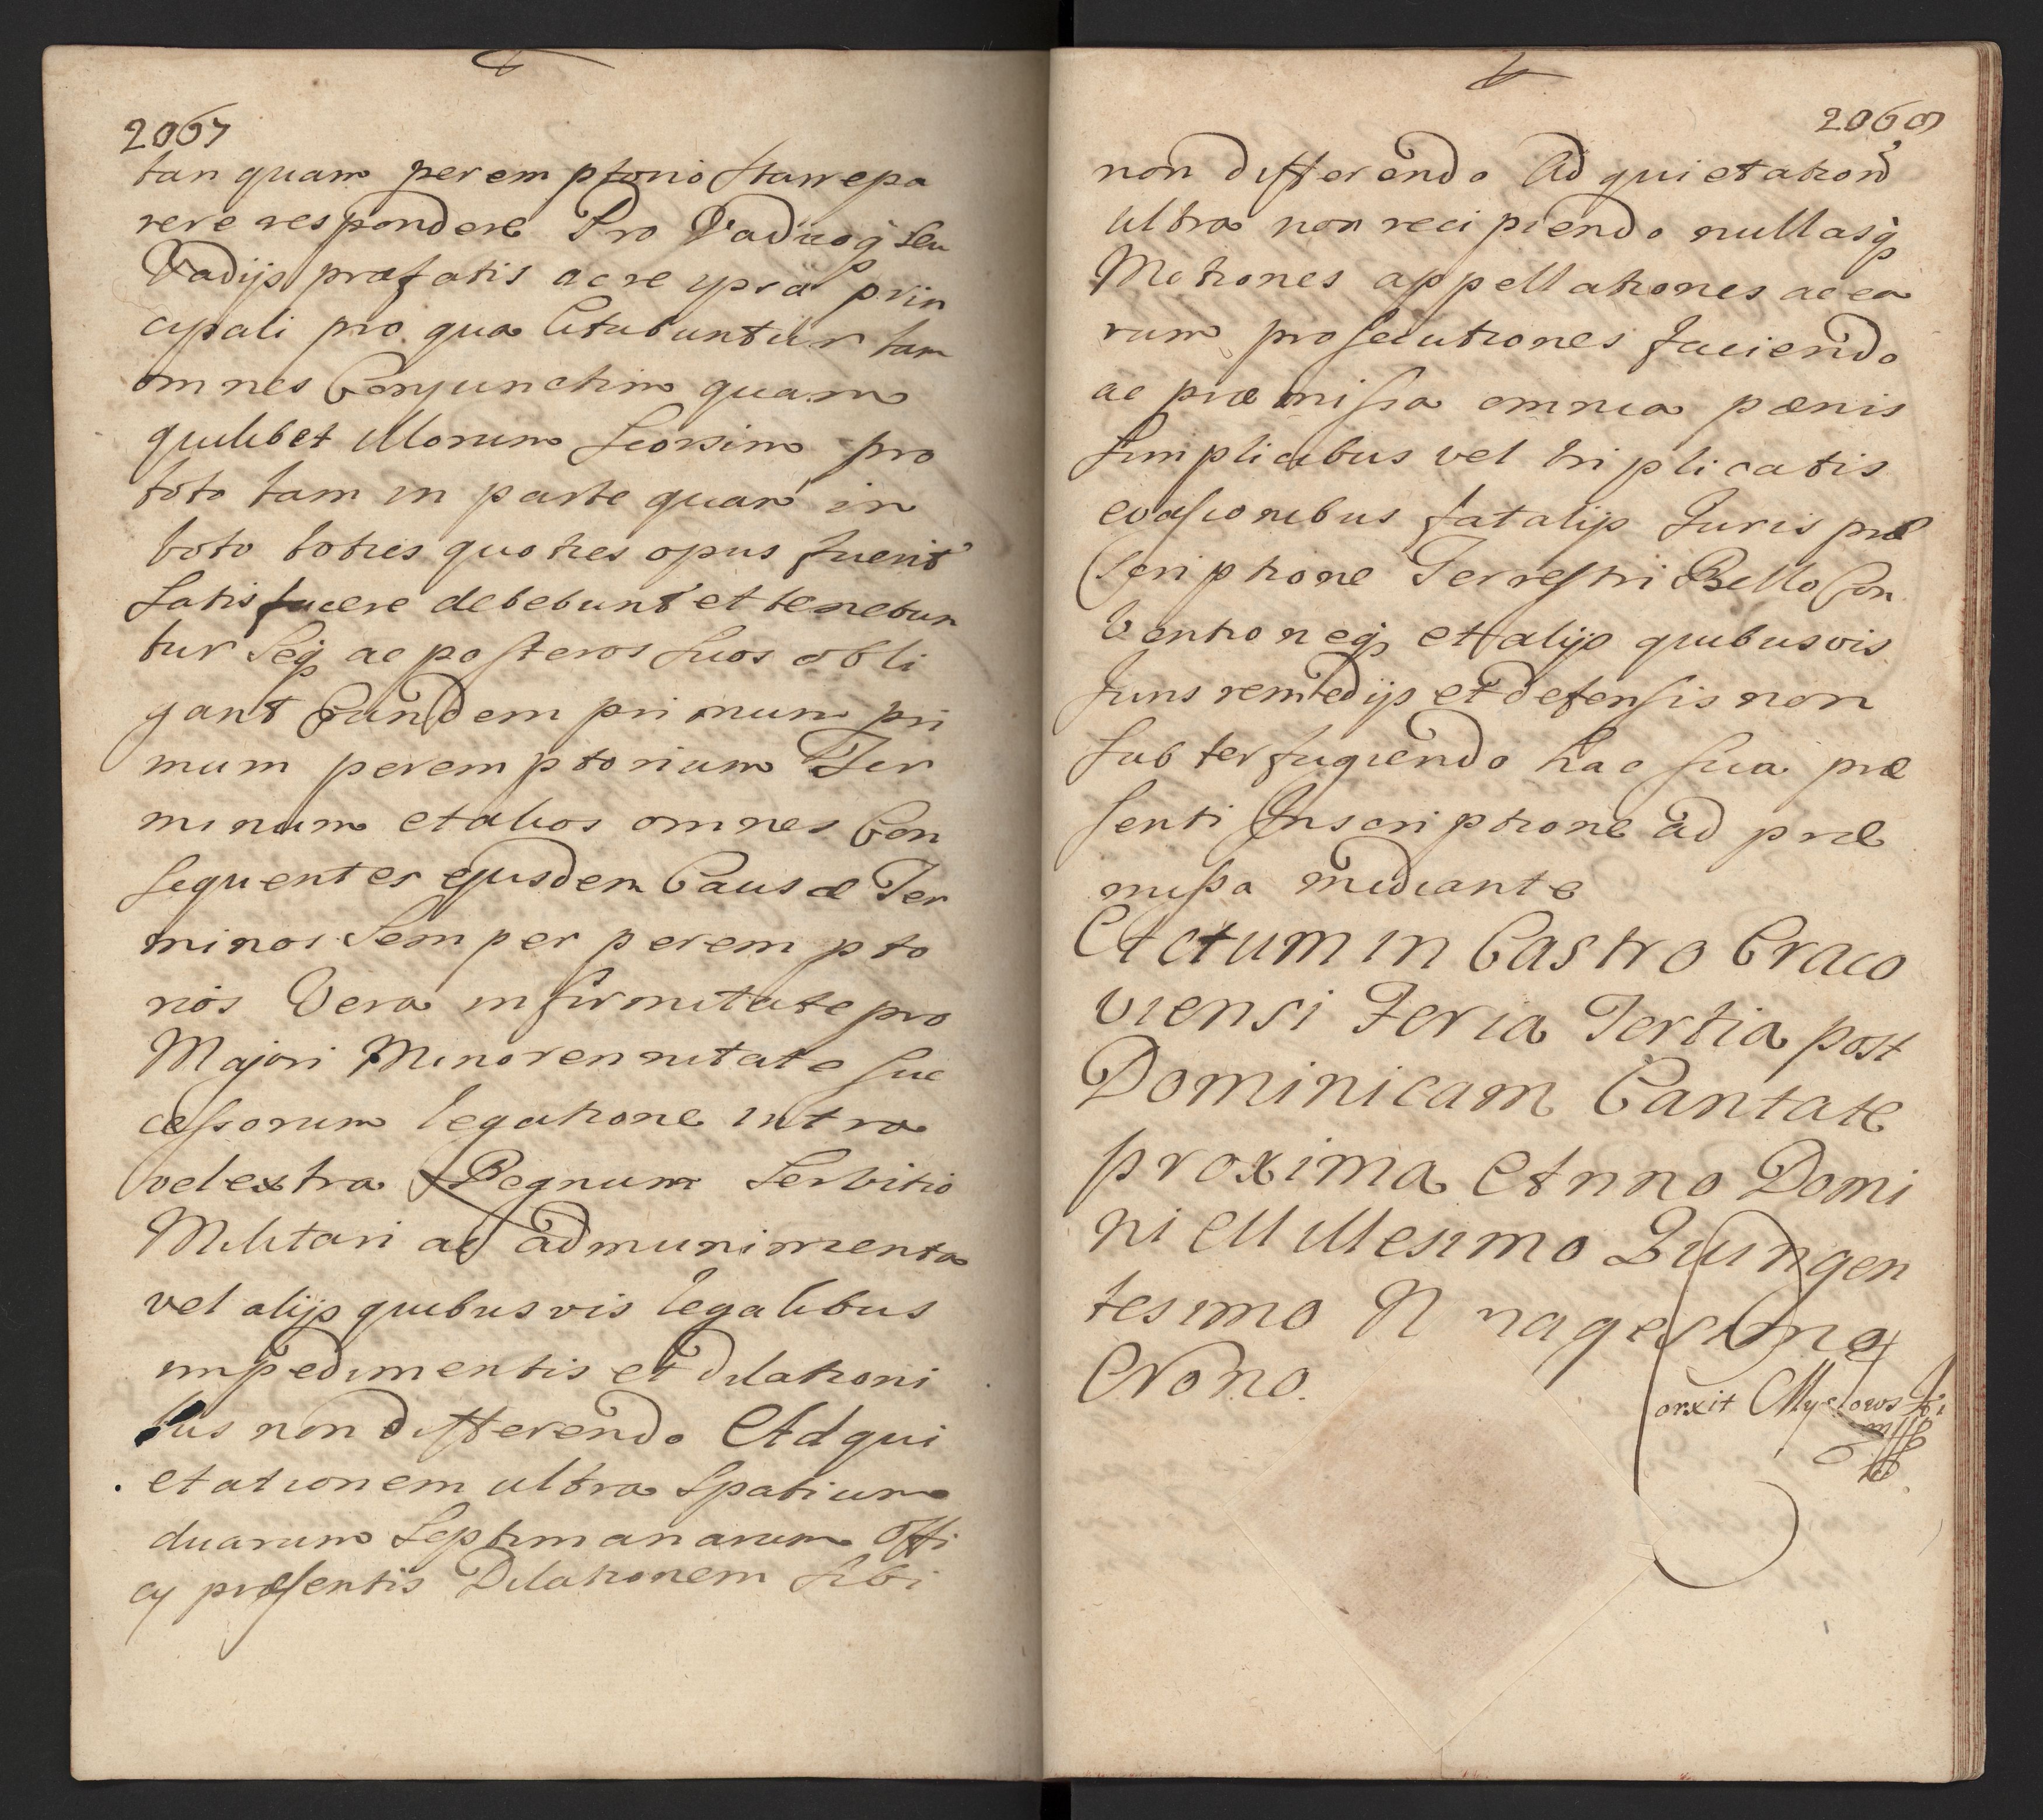 2067
tanquam peremptorio stare pa
rere respondere Pro Vadioq seu
Vadijs præfatis ac re ipsa prin
cipali pro qua Citabuntur tam
omnes Conjunctim quam
quilibet illorum seorsim pro
toto tam in parte quam in
toto toties quoties opus fuerit
satisfacere debebunt et tenebun
tur Seq ac posteros suos obli
gant Eundem primum pri
mum peremptorium Ter
minum et alios omnes Con
sequentes ejusdem Causæ Ter
minos Semper perempto
rios Vera infirmitate pro
Majori Minorennitate suc
cessorum legatione intra
vel extra Regnum Servitio
Militari ac ad munimenta
vel alijs quibusvis legalibus
impedimentis et dilationi
bus non differendo Ad qui
etationem ultra Spatium
duarum Septimanarum Offi
cij præsentis Dilationem sibi
2069
non differendo Ad quietationē
ultra non recipiendo nullasq
Motiones appellationes ac ea
rum prosecutiones faciendo
ac præmissa omnia pænis
simplicibus vel triplicatis
evasionibus fatalijs Juris præ
scriptione Terrestri Bello Con
ventioneq et alijs quibusvis
Juris remedijs et defensis non
subterfugiendo hac sua præ
senti Inscriptione ad præ
missa mediante
Actum in Castro Craco
viensi Feria Tertia post
Dominicam Cantate
proxima Anno Domi
ni Millesimo Quingen
tesimo Nonagesimo
Nono.
orxit Myclowski
mpp